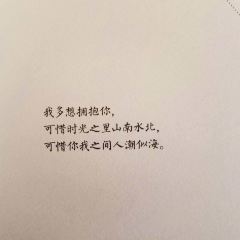 我多想拥抱你，
可惜时光之里山南水北，
可惜你我之间人潮似海。